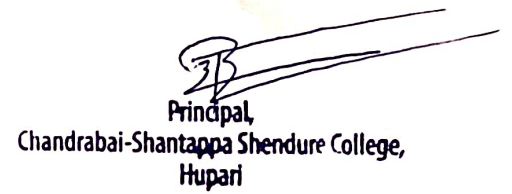 Principal,
Chandrabai-Shantappa Shendure College,
Hupari